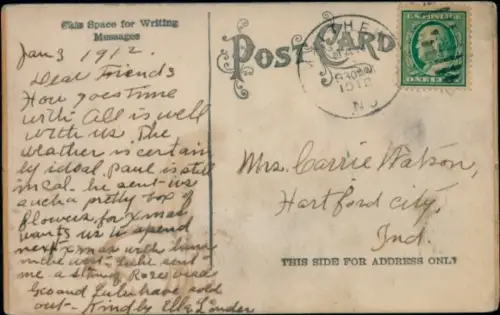 This Space for Writing
Messages
POST CARD
U.S. POSTAGE
930
1912
N.J
Jan 3 1912.
Dear Friends
How goes time
with All is well
with us The
weather is certain
ly ideal. Paul is still
in cal. he sent us
such a pretty box of
flowers for Xmas
wants us to spend
next Xmas with him
in the west-
me a string Rose
Geo and Lulu have sold
out - Kindly
Mrs. Carrie Watson,
Hartford City,
Ind.
THIS SIDE FOR ADDRESS ONLY